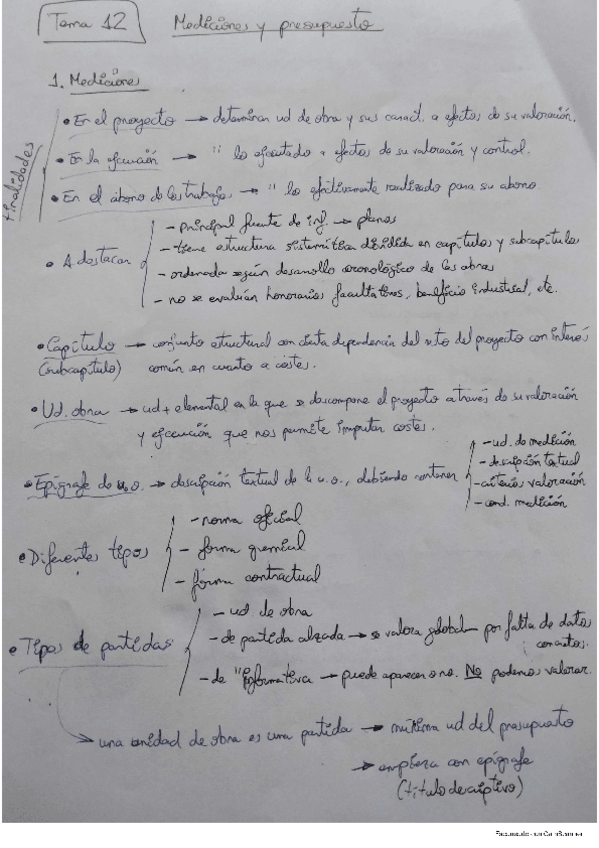 Tema 12 Mediciones y presupuesto
1. Medicione
Finalidades
• En el proyecto → determinar ud de obra y sus caract. a efectos de su valoración.
• En la ejecución → " lo ejecutado a efectos de su valoración y control.
• En el abono de los trabajos → " lo efectivamente realizado para su abono.
• A destacar
- principal fuente de inf. → planos
- tiene estructura sistemática dividida en capítulos y subcapítulos
- ordenada según desarrollo cronológico de las obras
- no se evalúan honorarios facultativos, beneficio industrial, etc.
• Capítulo → conjunto estructural con cierta dependencia del resto del proyecto con interés
(subcapítulo) común en cuanto a costes.
• Ud. obra → ud + elemental en la que se descompone el proyecto a través de su valoración
y ejecución que nos permite imputar costes.
• Epígrafe de u.o. → descripción textual de la u.o., debiendo contener
- ud. de medición
- descripción textual
- criterios valoración
- cond. medición
• Diferentes tipos
- norma oficial
- forma gremial
- forma contractual
• Tipos de partidas
- ud. de obra
- de partida alzada → se valora global por falta de datos
concretos.
- de " informativa → puede aparecer o no. No podemos valorar.
→ una unidad de obra es una partida → mínima ud del presupuesto
→ empieza con epígrafe
(título descriptivo)